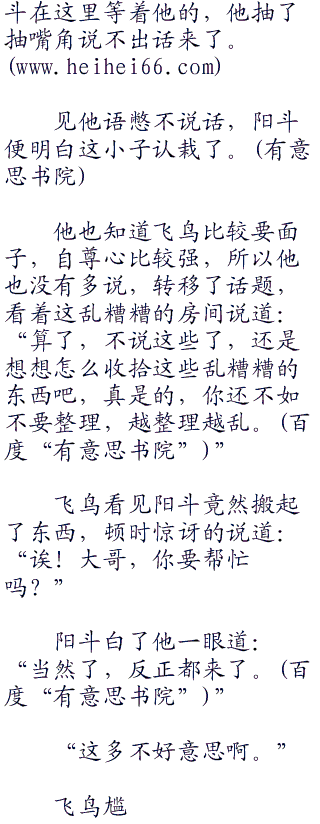 斗在这里等着他的，他抽了
抽嘴角说不出话来了。
(www.heihei66.com)
见他语憋不说话，阳斗
便明白这小子认栽了。(有意
思书院)
他也知道飞鸟比较要面
子，自尊心比较强，所以他
也没有多说，转移了话题，
看着这乱糟糟的房间说道：
“算了，不说这些了，还是
想想怎么收拾这些乱糟糟的
东西吧，真是的，你还不如
不要整理，越整理越乱。(百
度“有意思书院”)”
飞鸟看见阳斗竟然搬起
了东西，顿时惊讶的说道：
“诶！大哥，你要帮忙
吗？”
阳斗白了他一眼道：
“当然了，反正都来了。(百
度“有意思书院”)”
“这多不好意思啊。”
飞鸟尴